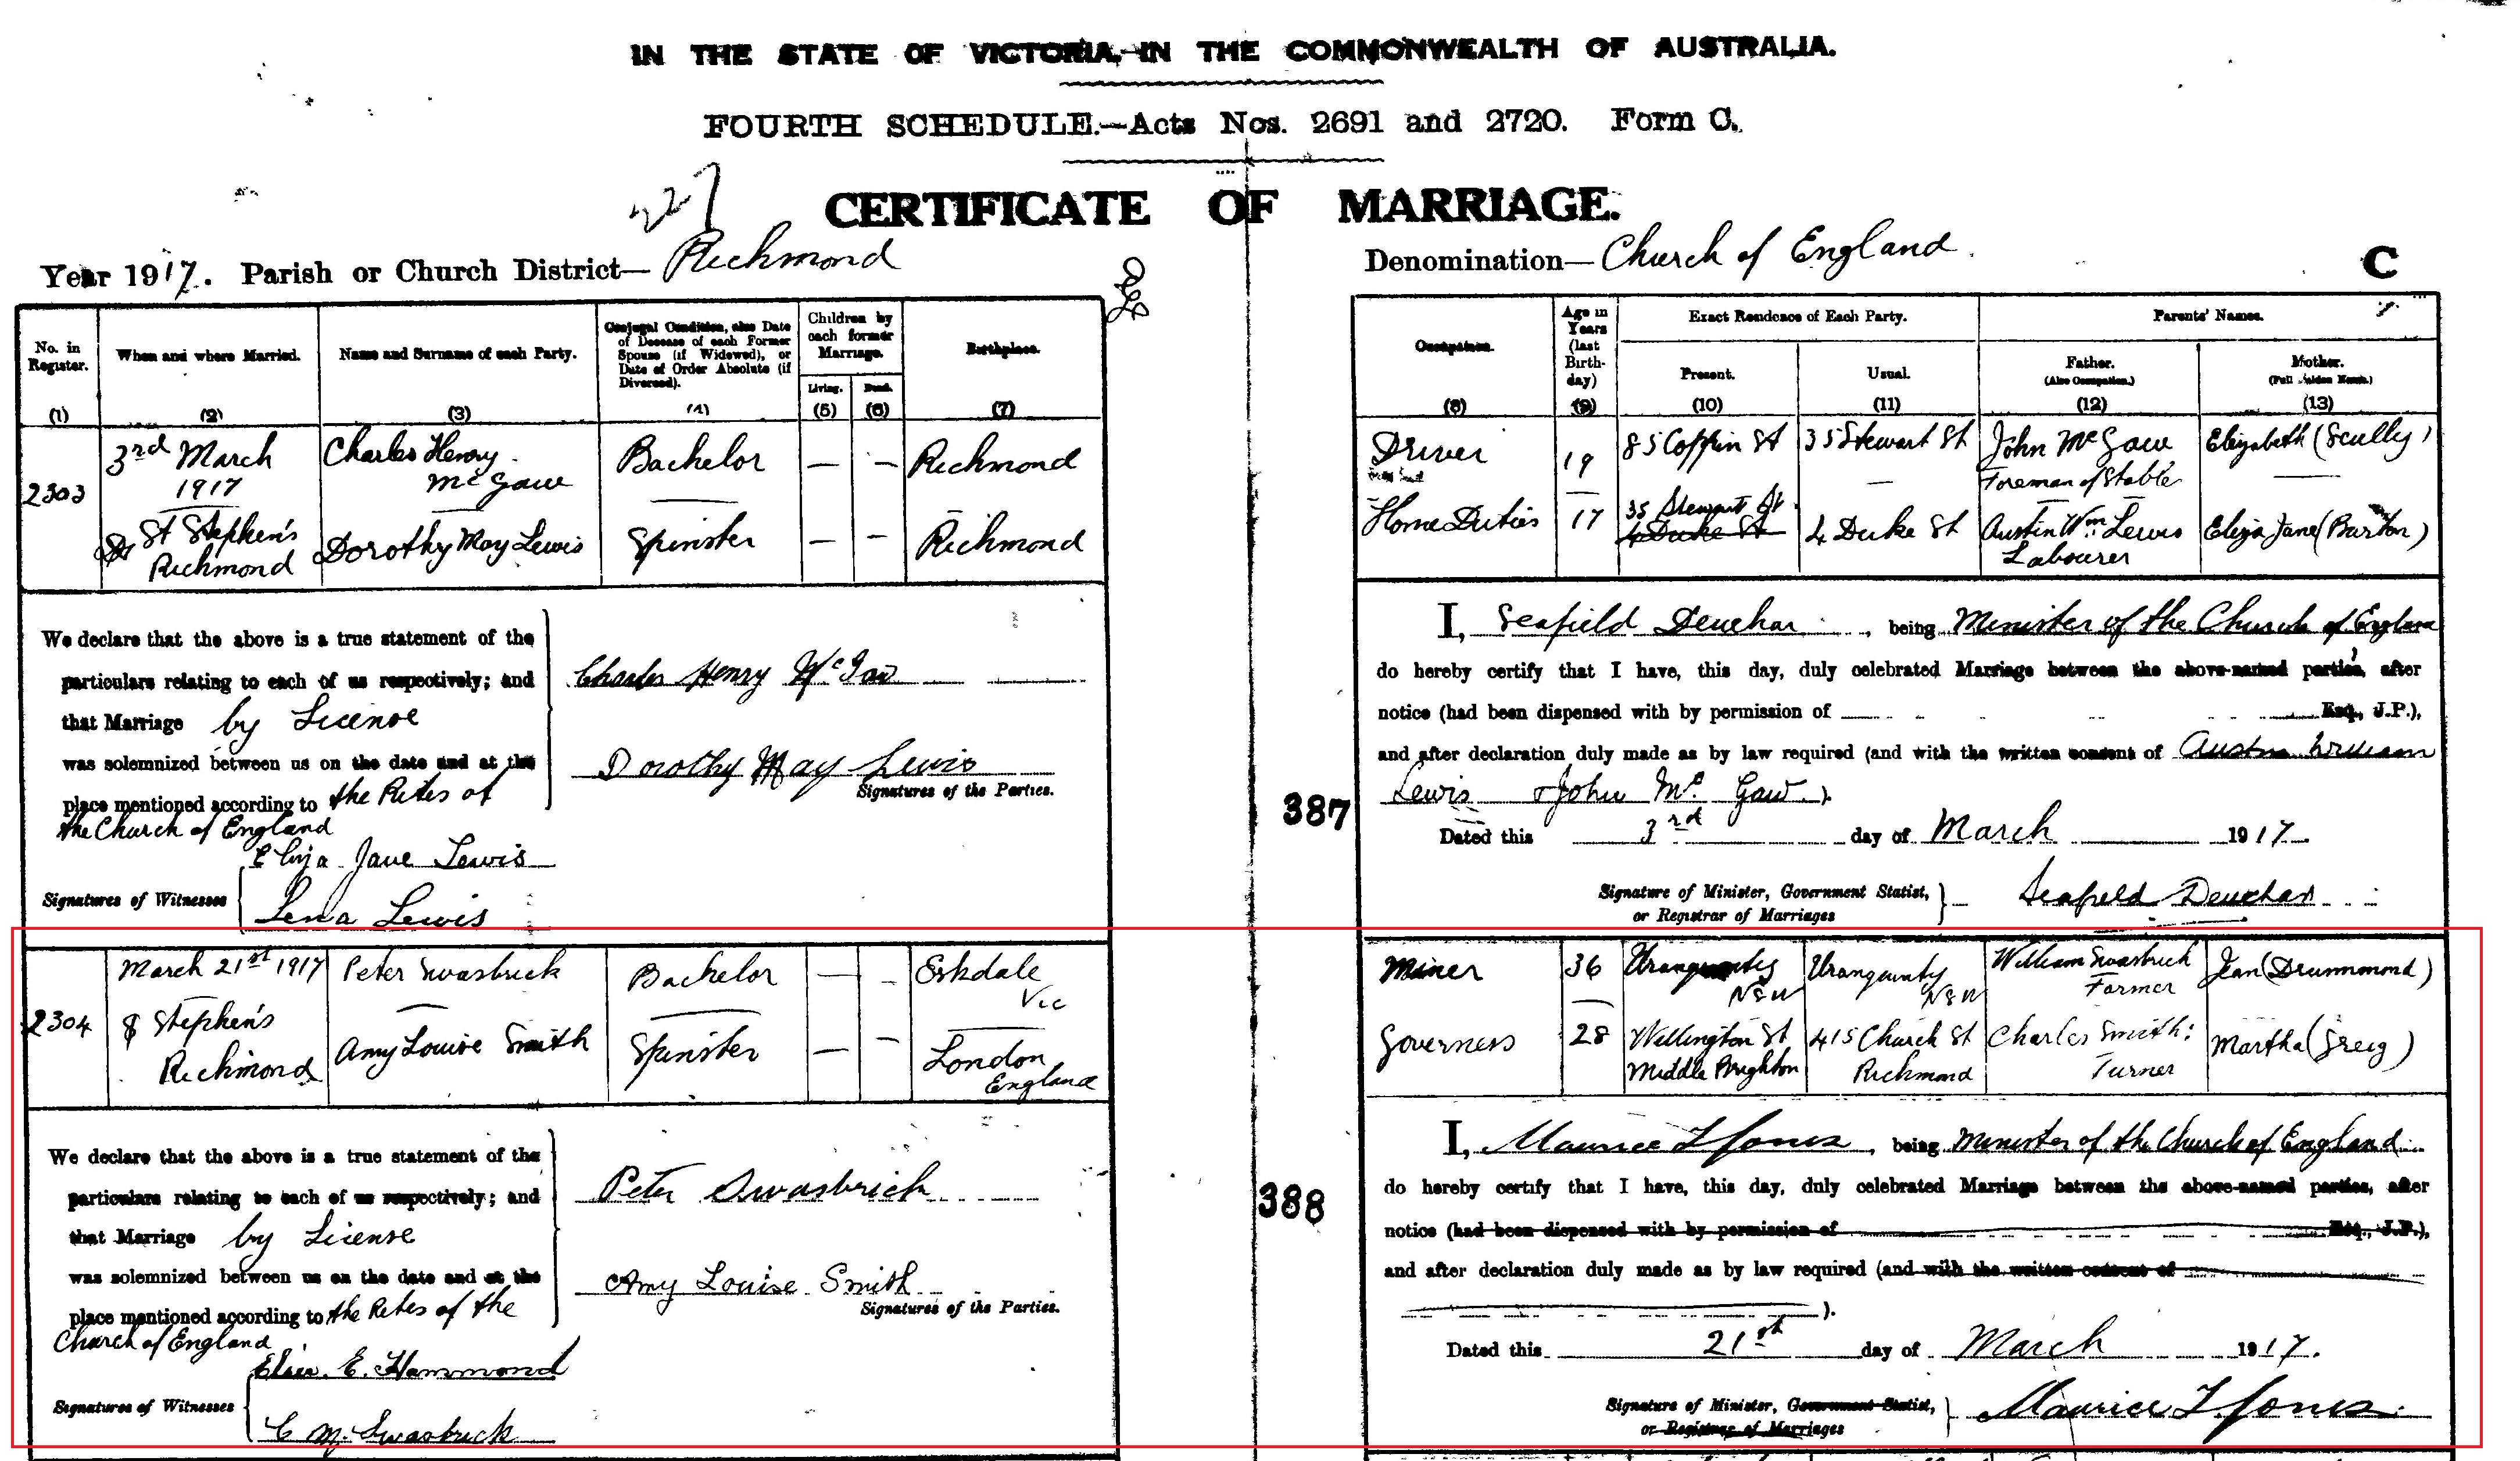 IN THE STATE OF VICTORIA, IN THE COMMONWEALTH OF AUSTRALIA.
FOURTH SCHEDULE.—Acts Nos. 2691 and 2720. Form C.
327
CERTIFICATE OF MARRIAGE.
Year 1917. Parish or Church District— Richmond
Denomination— Church of England.
C
No. in Register. (1)
When and where Married. (2)
Name and Surname of each Party. (3)
Conjugal Condition, also Date of Decease of each Former Spouse (if Widowed), or Date of Order Absolute (if Divorced). (4)
Children by each former Marriage.
Living. (5)
Dead. (6)
Birthplace. (7)
Occupation. (8)
Age in Years (last Birthday) (9)
Exact Residence of Each Party.
Present. (10)
Usual. (11)
Parents' Names.
Father. (Also Occupation.) (12)
Mother. (Full Maiden Name.) (13)
2303
3rd March 1917
St Stephen's Richmond
Charles Henry McGaw
Bachelor — — Richmond
Driver 19 85 Coppin St 35 Stewart St John McGaw Foreman of Stable Elizabeth (Scully)
Dorothy May Lewis
Spinster — — Richmond
Home Duties 17 35 Stewart St 4 Duke St 4 Duke St Austin Wm Lewis Labourer Eliza Jane (Burton)
We declare that the above is a true statement of the
particulars relating to each of us respectively; and
that Marriage by License
was solemnized between us on the date and at the
place mentioned according to the Rites of
the Church of England
Charles Henry McGaw
Dorothy May Lewis
Signatures of the Parties.
Signatures of Witnesses
Eliza Jane Lewis
Lena Lewis
387
I, Seafield Deuchar, being Minister of the Church of England
do hereby certify that I have, this day, duly celebrated Marriage between the above-named parties, after
notice (had been dispensed with by permission of Esq., J.P.),
and after declaration duly made as by law required (and with the written consent of Austin William
Lewis & John Mc Gaw).
Dated this 3rd day of March 1917.
Signature of Minister, Government Statist,
or Registrar of Marriages
Seafield Deuchar
2304
March 21st 1917
St Stephen's
Richmond
Peter Swasbrick
Bachelor — — Eskdale Vic
Miner 36 Urangunty NSW Urangunty NSW William Swasbrick Farmer Jean (Drummond)
Amy Louise Smith
Spinster — — London England
Governess 28 Wellington St Middle Brighton 415 Church St Richmond Charles Smith: Turner Martha (Greig)
We declare that the above is a true statement of the
particulars relating to each of us respectively; and
that Marriage by License
was solemnized between us on the date and at the
place mentioned according to the Rites of the
Church of England
Peter Swasbrick
Amy Louise Smith
Signatures of the Parties.
Signatures of Witnesses
Elsie. E. Hammond
C M. Swasbrick
388
I, Maurice Jones, being Minister of the Church of England
do hereby certify that I have, this day, duly celebrated Marriage between the above-named parties, after
notice (had been dispensed with by permission of Esq., J.P.),
and after declaration duly made as by law required (and with the written consent of
).
Dated this 21st day of March 1917.
Signature of Minister, Government Statist,
or Registrar of Marriages
Maurice Jones.